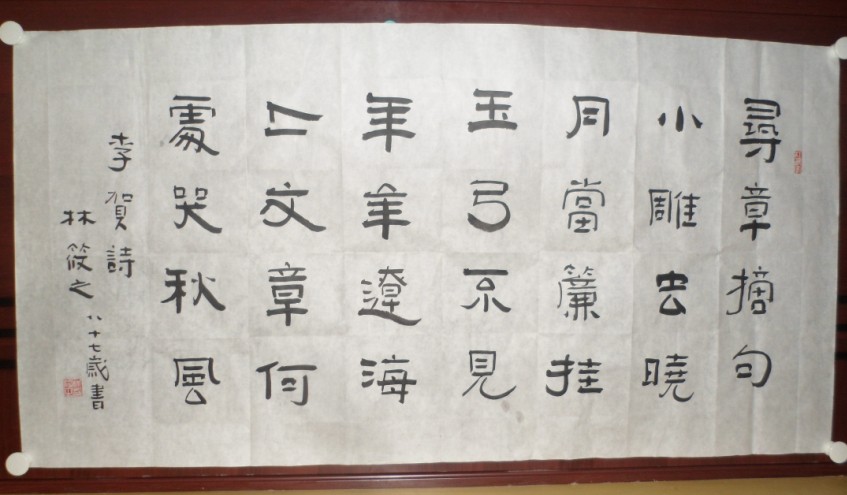 尋章摘句
小雕虫曉
月當簾挂
玉弓不見
年年遼海
上文章何
處哭秋風
李賀詩
林筱之八十七歲書